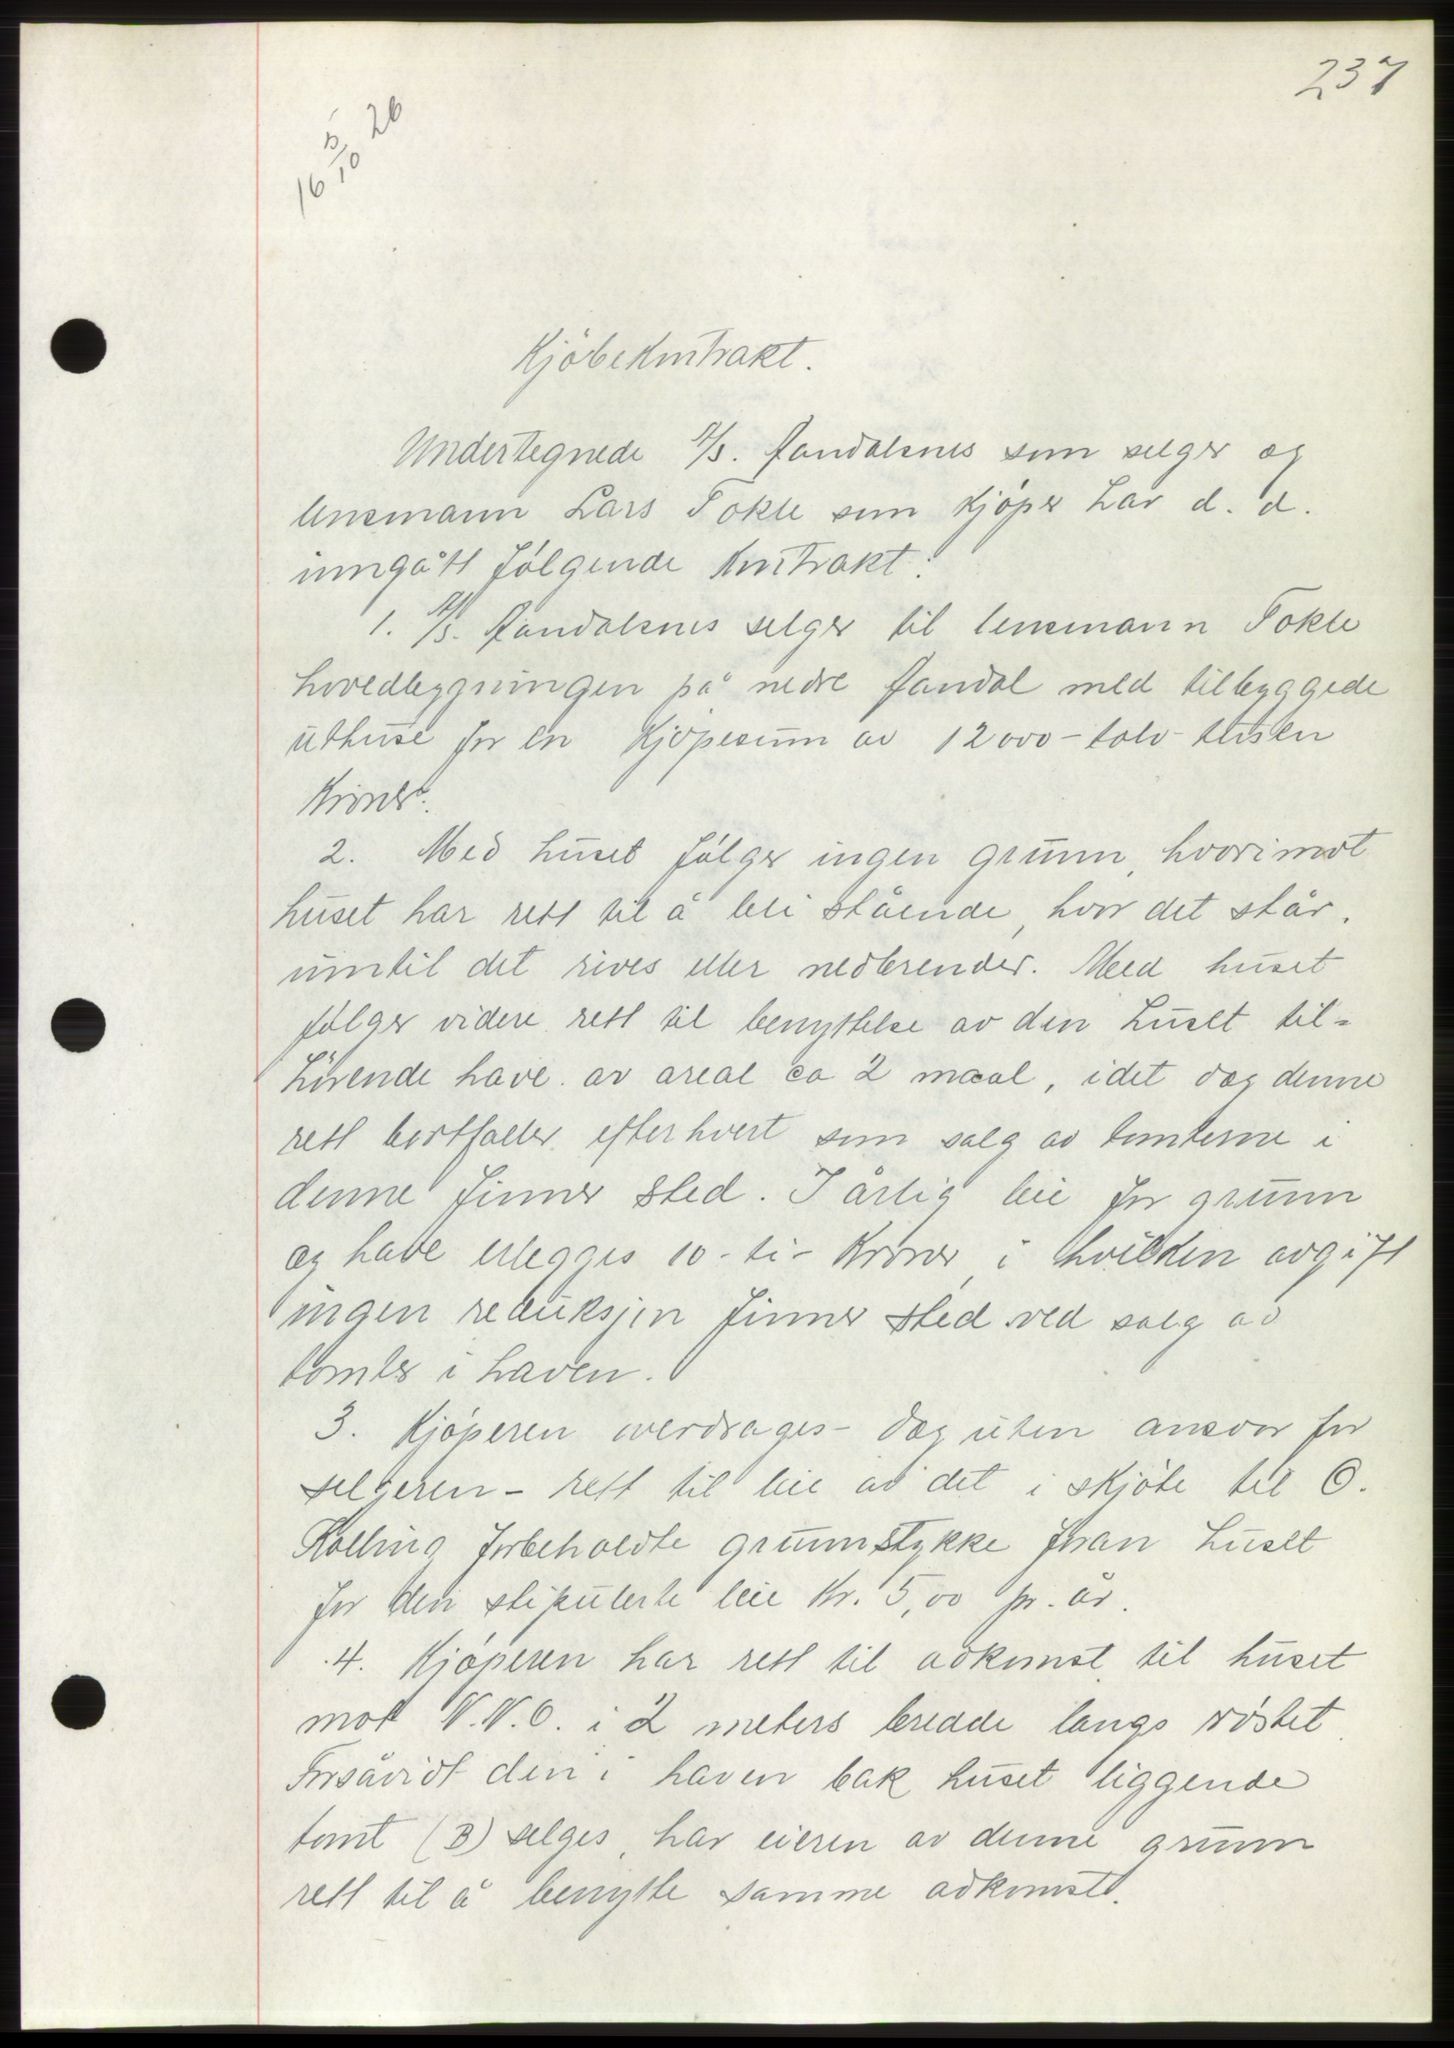 237
16 5/10 26
Kjöbekontrakt.
Undertegnede A/S. Aandalsnes som selger og
lensmann Lars Tokle som kjøper har d. d.
inngått følgende kontrakt:
1. A/S. Aandalsnes selger til lensmann Tokle
hovedbygningen på nedre Aandal med tilbyggede
uthuse for en kjøpesum av 12000 - tolv - tusen
kroner.
2. Med huset følger ingen grunn, hvorimot
huset har rett til å bli stående, hvor det står,
inntil det rives eller nedbrender. Med huset
følger videre rett til benyttelse av den huset til-
hørende have av areal ca 2 maal, idet dog denne
rett bortfaller efterhvert som salg av tomterne i
denne finner sted. I årlig leie for grunn
og have erlegges 10 - ti - kroner, i hvilken avgift
ingen reduksjon finner sted ved salg av
tomter i haven.
3. Kjøperen overdrages - dog uten ansvar for
selgeren - rett til leie av det i skjøte til O.
Kolling forbeholdte grunnstykke foran huset
for den stipulerte leie Kr. 5,00 pr. år.
4. Kjøperen har rett til adkomst til huset
mot N.N.O. i 2 meters bredde langs røstet.
Forsåvidt den i haven bak huset liggende
tomt (B) selges, har eieren av denne grunn
rett til å benytte samme adkomst.